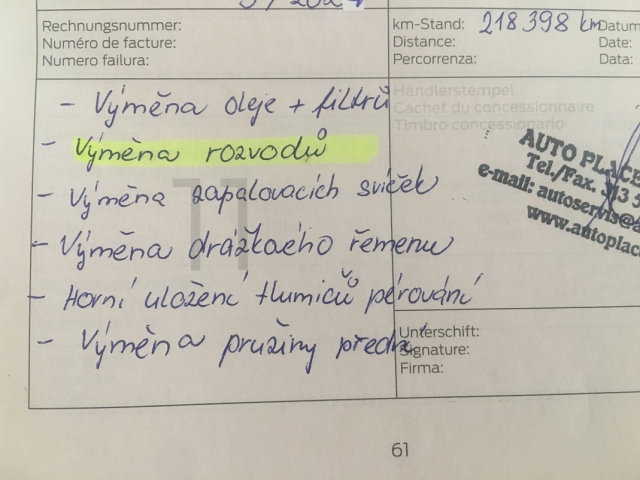 Rechnungsnummer:
Numéro de facture:
Numero failura:
km-Stand: 218 398 km
Distance:
Percorrenza:
Datum
Date:
Data:
- Výměna oleje + filtrů
- Výměna rozvodů
- Výměna zapalovacích svíček
- Výměna drážkového řemenu
- Horní uložení tlumičů pérování
- Výměna pružiny přední
Händlerstempel
Cachet du concessionnaire
Timbro concessionario
AUTO PLACE
Tel./Fax. 313 5
e-mail: autoservis@a
www.autoplac
11
Unterschift:
Signature:
Firma:
61